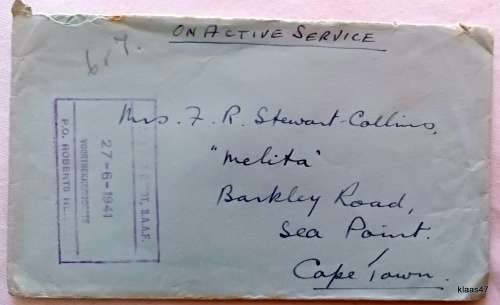 ON ACTIVE SERVICE
6d 7.
Mrs. F. R. Stewart-Collins,
"Melita"
Barkley Road,
Sea Point.
Cape Town.
S.A.A.F.
27-6-1941
P.O. ROBERTS
klaas47